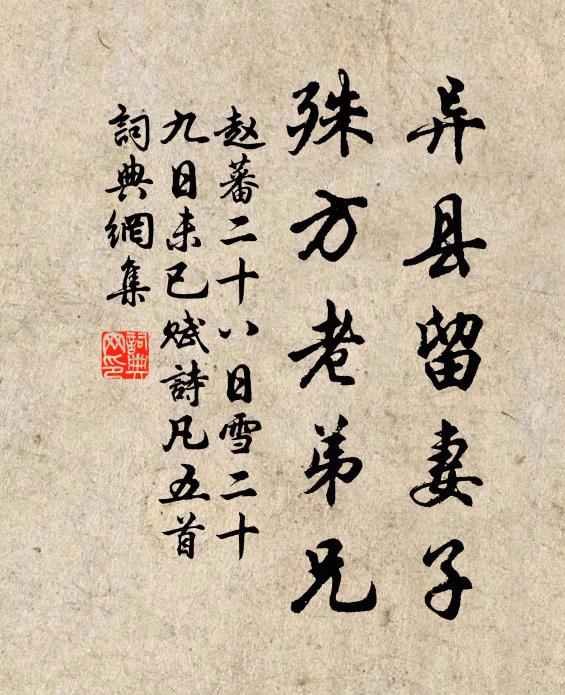 异县留妻子
殊方老弟兄
赵蕃二十八日雪二十
九日未已赋詩凡五首
詞典網集
詞典
网印